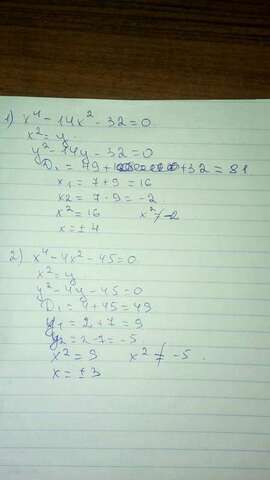 1) x⁴ - 14x² - 32 = 0
x² = y
y² - 14y - 32 = 0
D₁ = 49 + 32 = 81
x1 = 7 + 9 = 16
x2 = 7 - 9 = -2
x² = 16 x² ≠ -2
x = ± 4
2) x⁴ - 4x² - 45 = 0
x² = y
y² - 4y - 45 = 0
D₁ = 4 + 45 = 49
y₁ = 2 + 7 = 9
y₂ = 2 - 7 = -5
x² = 9 x² ≠ -5.
x = ± 3